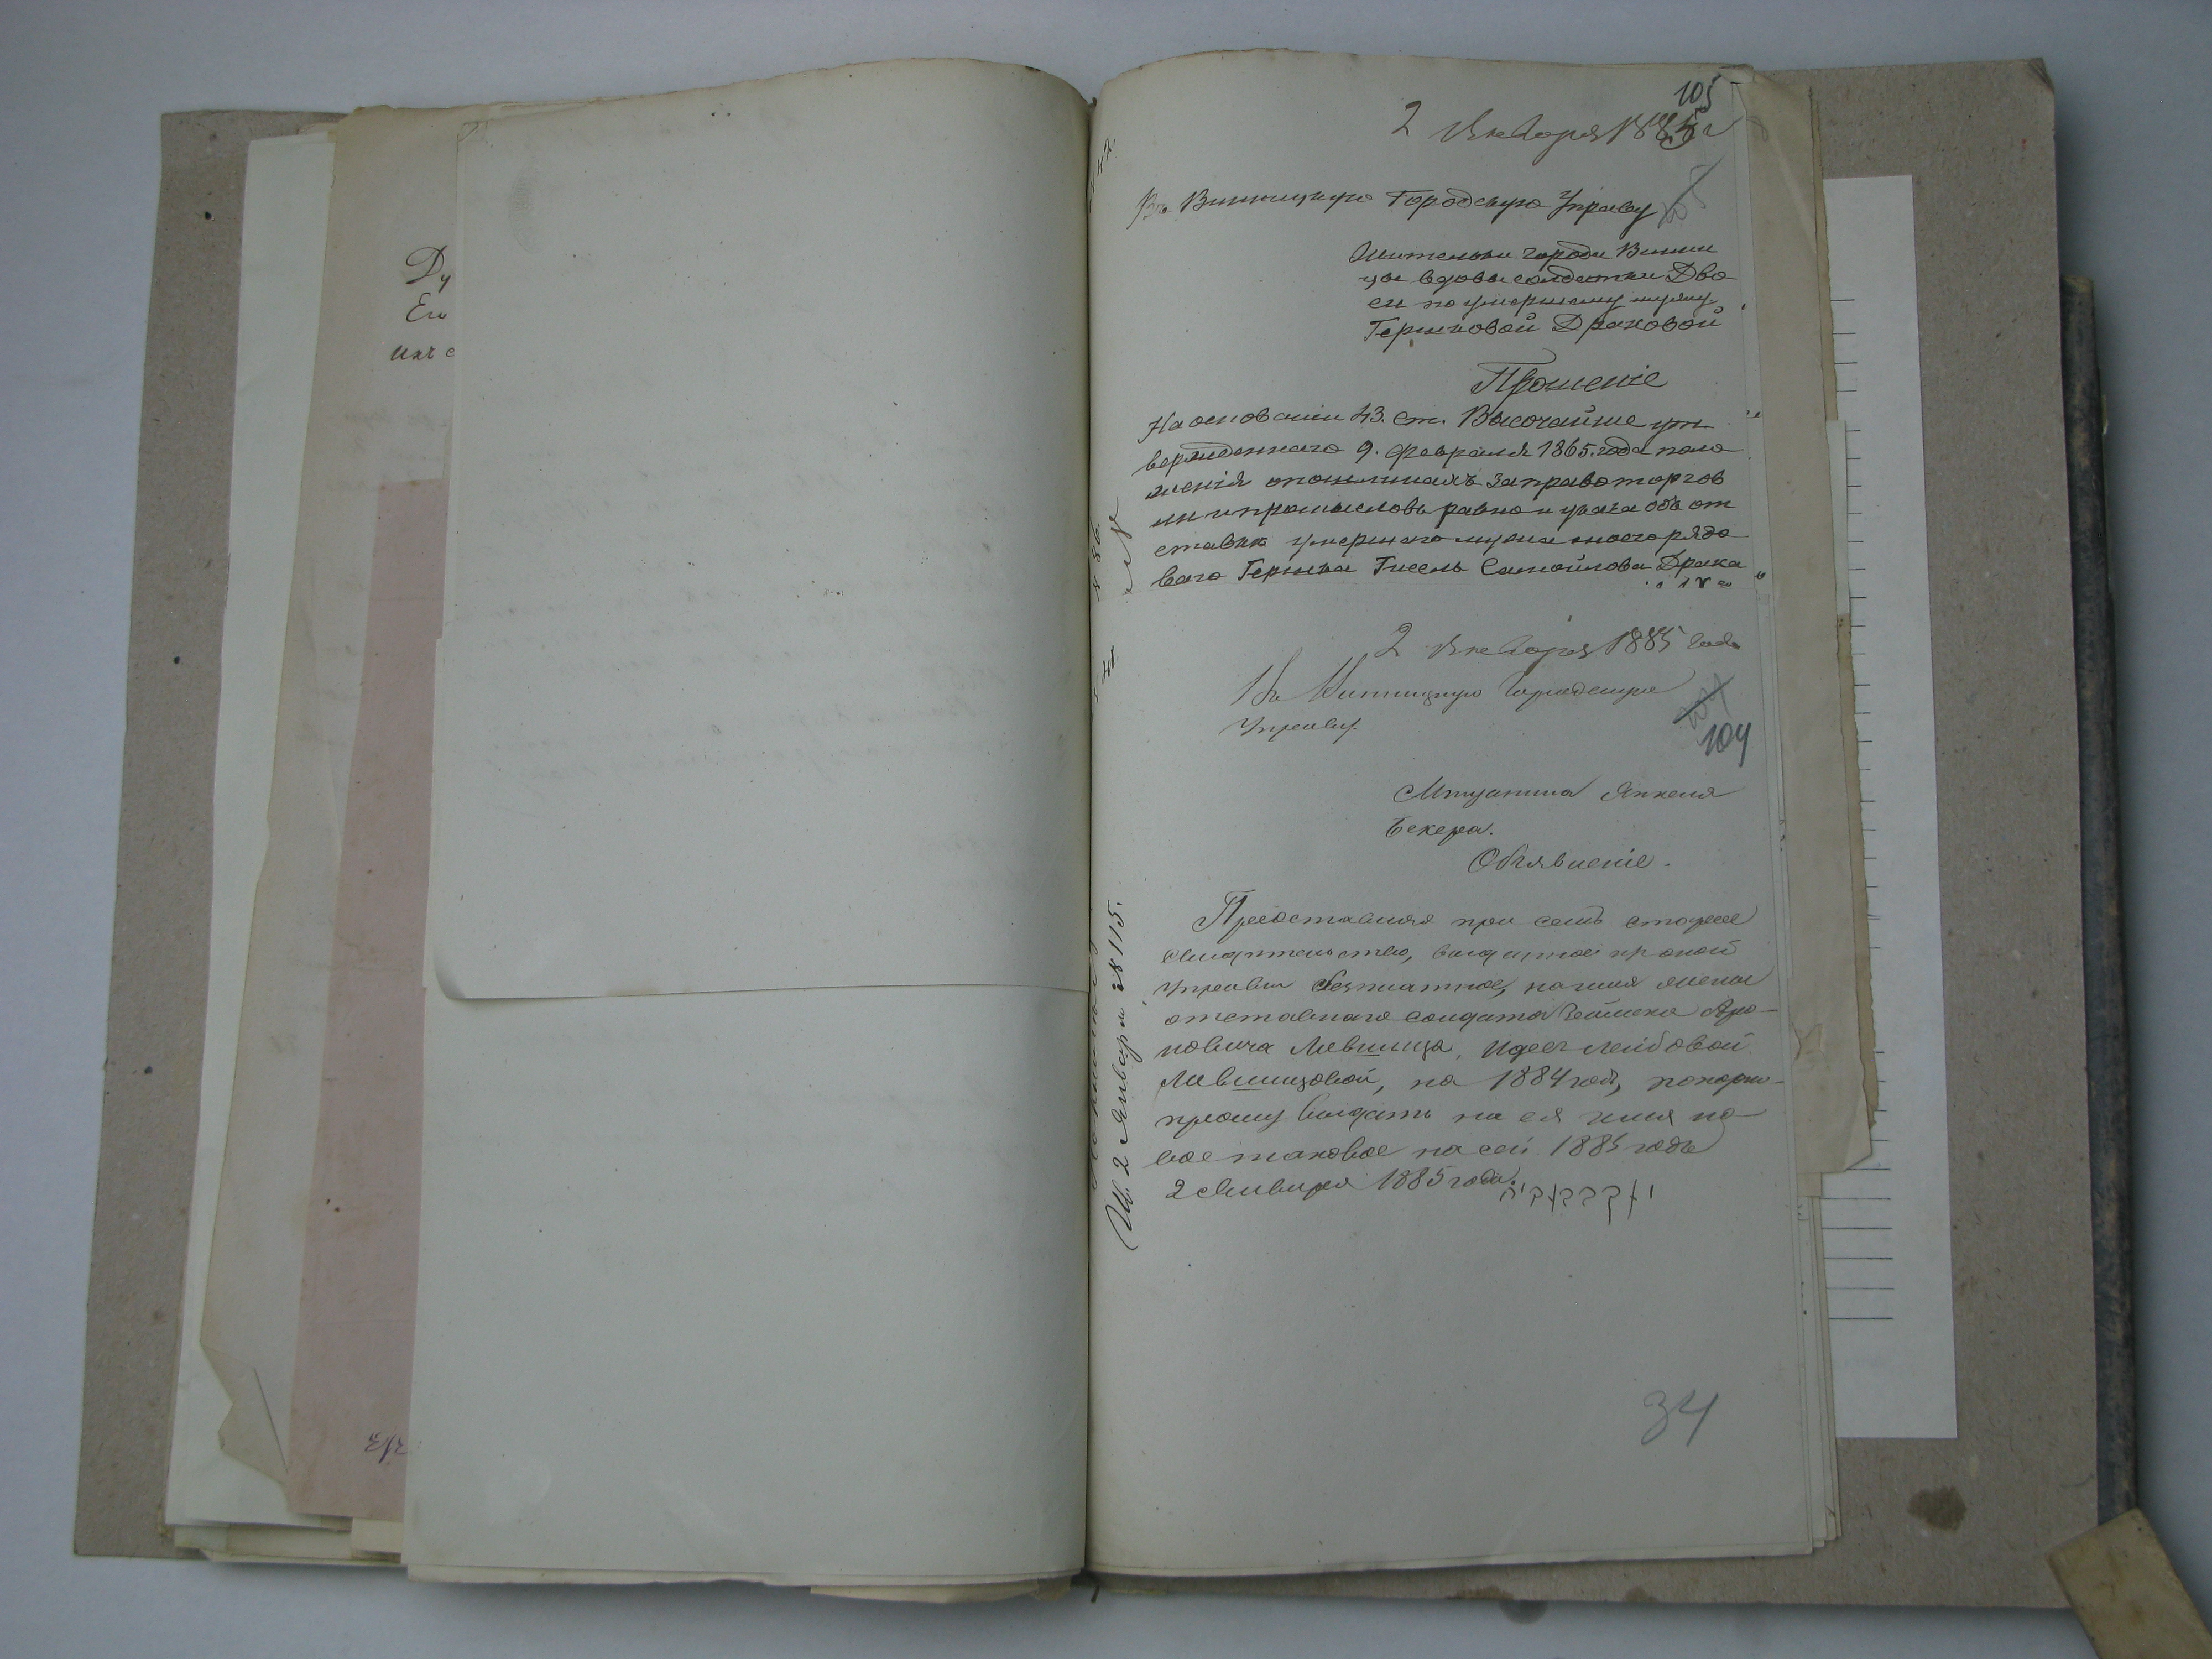 Ду
Его
их с
105
2 Января 1885 г
Въ Винницкую Городскую Управу
Жительки города Винни
цы вдовы солдатки Дво
си по умершему мужу
Гершковой Драковой
Прошеніе
На основаніи 43. ст. Высочайше ут
вержденнаго 9. февраля 1865. года поло
женія о пошлинахъ за право торгов
ли и промысловъ равно и указа объ от
ставке умершаго мужа моего рядо
ваго Гершка Гисель Самойлова Драка
2 Января 1885 года
Въ Винницкую Городскую
Управу.
104
Мещанина Янкеля
Бекера.
Объявленіе.
Представляя при семъ старое
свидетельство, выданное
Управы безплатное, на имя жены
отставнаго солдата Аро-
новича Лившица, Идесъ Лейбовой
Лившицовой, на 1884 годъ, покорно
прошу выдать на ея имя но
вое таковое на сей 1885 годъ
2 Января 1885 года.
Ш. 2 Января № 115.
34